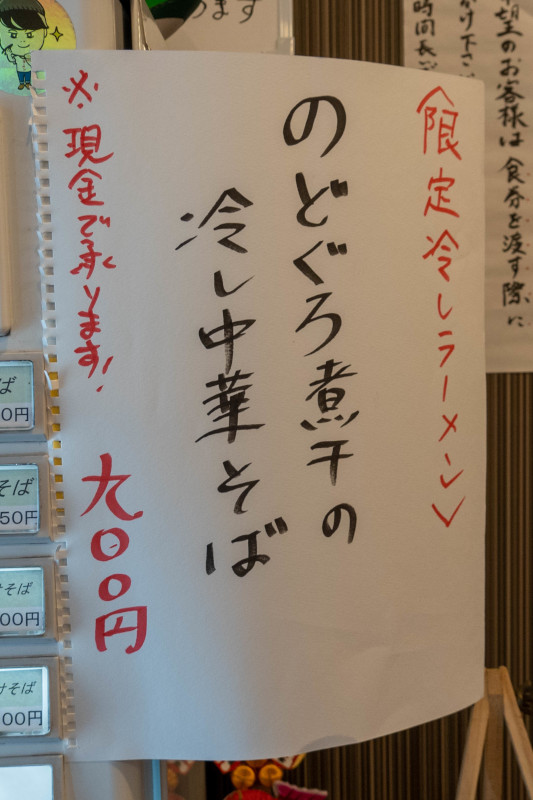 〈限定冷しラーメン〉
のどぐろ煮干の
冷し中華そば
※現金で承ります!
九〇〇円
望のお客様は食券を渡す際に
け下さい
時間長
ます
ば
0円
そば
50円
けそば
00円
けそば
00円